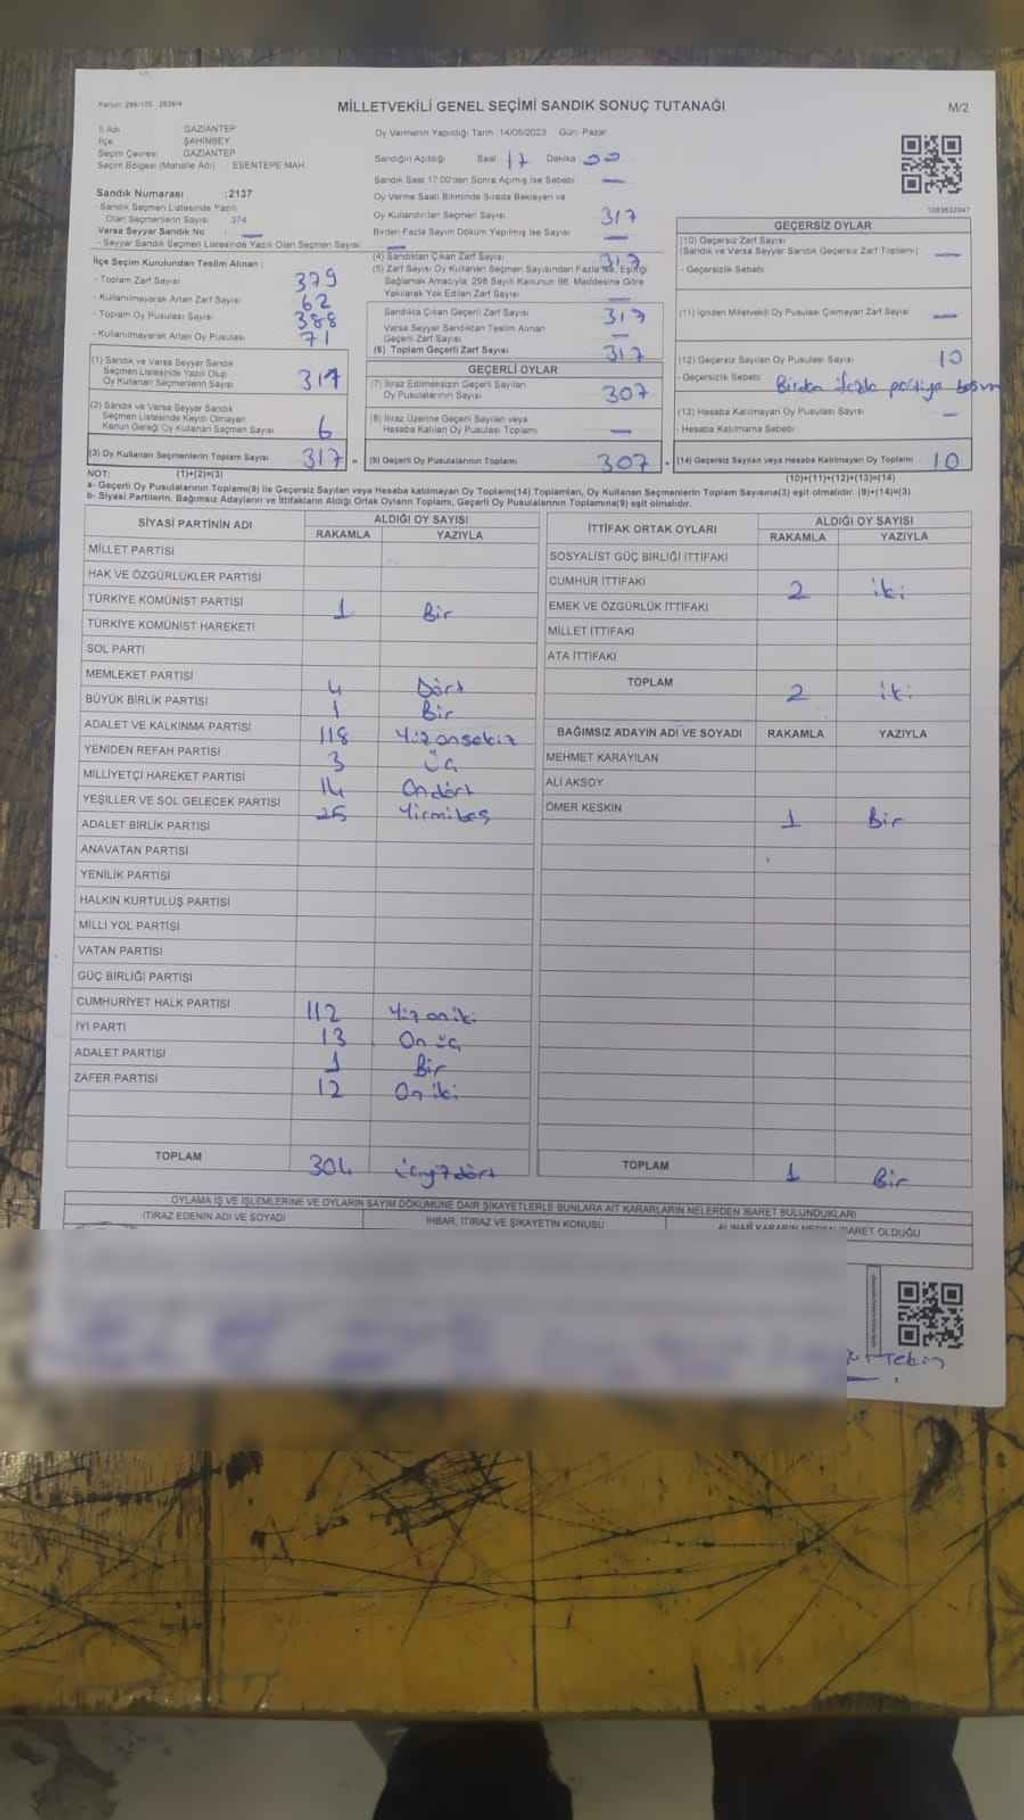 MİLLETVEKİLİ GENEL SEÇİMİ SANDIK SONUÇ TUTANAĞI
M/2
İl Adı GAZİANTEP
İlçe ŞAHİNBEY
Seçim Çevresi GAZİANTEP
Seçim Bölgesi (Mahalle Adı) : ESENTEPE MAH.
Oy Vermenin Yapıldığı Tarih :14/05/2023 Gün: Pazar
Sandığın Açıldığı Saat 17 Dakika 00
Sandık Saat 17.00'den Sonra Açılmış İse Sebebi —
Sandık Numarası :2137
Sandık Seçmen Listesinde Yazılı
Olan Seçmenlerin Sayısı 374
Varsa Seyyar Sandık No —
- Seyyar Sandık Seçmen Listesinde Yazılı Olan Seçmen Sayısı —
Oy Verme Saati Bitiminde Sırada Bekleyen ve
Oy Kullandırılan Seçmen Sayısı 317
Birden Fazla Sayım Döküm Yapılmış İse Sayısı —
İlçe Seçim Kurulundan Teslim Alınan :
- Toplam Zarf Sayısı 379
- Kullanılmayarak Artan Zarf Sayısı 62
- Toplam Oy Pusulası Sayısı 388
- Kullanılmayarak Artan Oy Pusulası 71
(1) Sandık ve Varsa Seyyar Sandık
Seçmen Listesinde Yazılı Olup
Oy Kullanan Seçmenlerin Sayısı
(2) Sandık ve Varsa Seyyar Sandık
Seçmen Listesinde Kayıtlı Olmayan
Kanun Gereği Oy Kullanan Seçmen Sayısı 6
(3) Oy Kullanan Seçmenlerin Toplam Sayısı 317
(4) Sandıktan Çıkan Zarf Sayısı 317
(5) Zarf Sayısı Oy Kullanan Seçmen Sayısından Fazla İse, Eşitliği
Sağlamak Amacıyla, 298 Sayılı Kanunun 98. Maddesine Göre
Yakılarak Yok Edilen Zarf Sayısı —
Sandıkta Çıkan Geçerli Zarf Sayısı 317
Varsa Seyyar Sandıktan Teslim Alınan
Geçerli Zarf Sayısı —
(6) Toplam Geçerli Zarf Sayısı 317
GEÇERLİ OYLAR
(7) İtiraz Edilmeksizin Geçerli Sayılan
Oy Pusulalarının Sayısı 307
(8) İtiraz Üzerine Geçerli Sayılan veya
Hesaba Katılan Oy Pusulası Toplamı —
(9) Geçerli Oy Pusulalarının Toplamı 307
GEÇERSİZ OYLAR
(10) Geçersiz Zarf Sayısı
(Sandık ve Varsa Seyyar Sandık Geçersiz Zarf Toplamı) —
- Geçersizlik Sebebi
(11) İçinden Milletvekili Oy Pusulası Çıkmayan Zarf Sayısı —
(12) Geçersiz Sayılan Oy Pusulası Sayısı 10
- Geçersizlik Sebebi Birden fazla partiye
(13) Hesaba Katılmayan Oy Pusulası Sayısı —
- Hesaba Katılmama Sebebi
(14) Geçersiz Sayılan veya Hesaba Katılmayan Oy Toplamı 10
NOT: (1)+(2)=(3) (10)+(11)+(12)+(13)=(14)
a- Geçerli Oy Pusulalarının Toplamı(9) ile Geçersiz Sayılan veya Hesaba katılmayan Oy Toplamı(14) Toplamları, Oy Kullanan Seçmenlerin Toplam Sayısına(3) eşit olmalıdır. (9)+(14)=(3)
b- Siyasi Partilerin, Bağımsız Adayların ve İttifakların Aldığı Ortak Oyların Toplamı, Geçerli Oy Pusulalarının Toplamına(9) eşit olmalıdır.
SİYASİ PARTİNİN ADI ALDIĞI OY SAYISI
RAKAMLA YAZIYLA
MİLLET PARTİSİ
HAK VE ÖZGÜRLÜKLER PARTİSİ
TÜRKİYE KOMÜNİST PARTİSİ 1 Bir
TÜRKİYE KOMÜNİST HAREKETİ
SOL PARTİ
MEMLEKET PARTİSİ 4 Dört
BÜYÜK BİRLİK PARTİSİ 1 Bir
ADALET VE KALKINMA PARTİSİ 118 Yüzonsekiz
YENİDEN REFAH PARTİSİ 3 Üç
MİLLİYETÇİ HAREKET PARTİSİ 14 Ondört
YEŞİLLER VE SOL GELECEK PARTİSİ 25 Yirmibeş
ADALET BİRLİK PARTİSİ
ANAVATAN PARTİSİ
YENİLİK PARTİSİ
HALKIN KURTULUŞ PARTİSİ
MİLLİ YOL PARTİSİ
VATAN PARTİSİ
GÜÇ BİRLİĞİ PARTİSİ
CUMHURİYET HALK PARTİSİ 112 Yüz oniki
İYİ PARTİ 13 On üç
ADALET PARTİSİ 1 Bir
ZAFER PARTİSİ 12 On iki
TOPLAM 304 Üçyüzdört
İTTİFAK ORTAK OYLARI ALDIĞI OY SAYISI
RAKAMLA YAZIYLA
SOSYALİST GÜÇ BİRLİĞİ İTTİFAKI
CUMHUR İTTİFAKI 2 iki
EMEK VE ÖZGÜRLÜK İTTİFAKI
MİLLET İTTİFAKI
ATA İTTİFAKI
TOPLAM 2 iki
BAĞIMSIZ ADAYIN ADI VE SOYADI RAKAMLA YAZIYLA
MEHMET KARAYILAN
ALİ AKSOY
ÖMER KESKİN 1 Bir
TOPLAM 1 Bir
OYLAMA İŞ VE İŞLEMLERİNE VE OYLARIN SAYIM DÖKÜMÜNE DAİR ŞİKAYETLERLE BUNLARA AİT KARARLARIN NELERDEN İBARET BULUNDUKLARI
İTİRAZ EDENİN ADI VE SOYADI
İHBAR, İTİRAZ VE ŞİKAYETİN KONUSU
Tekin